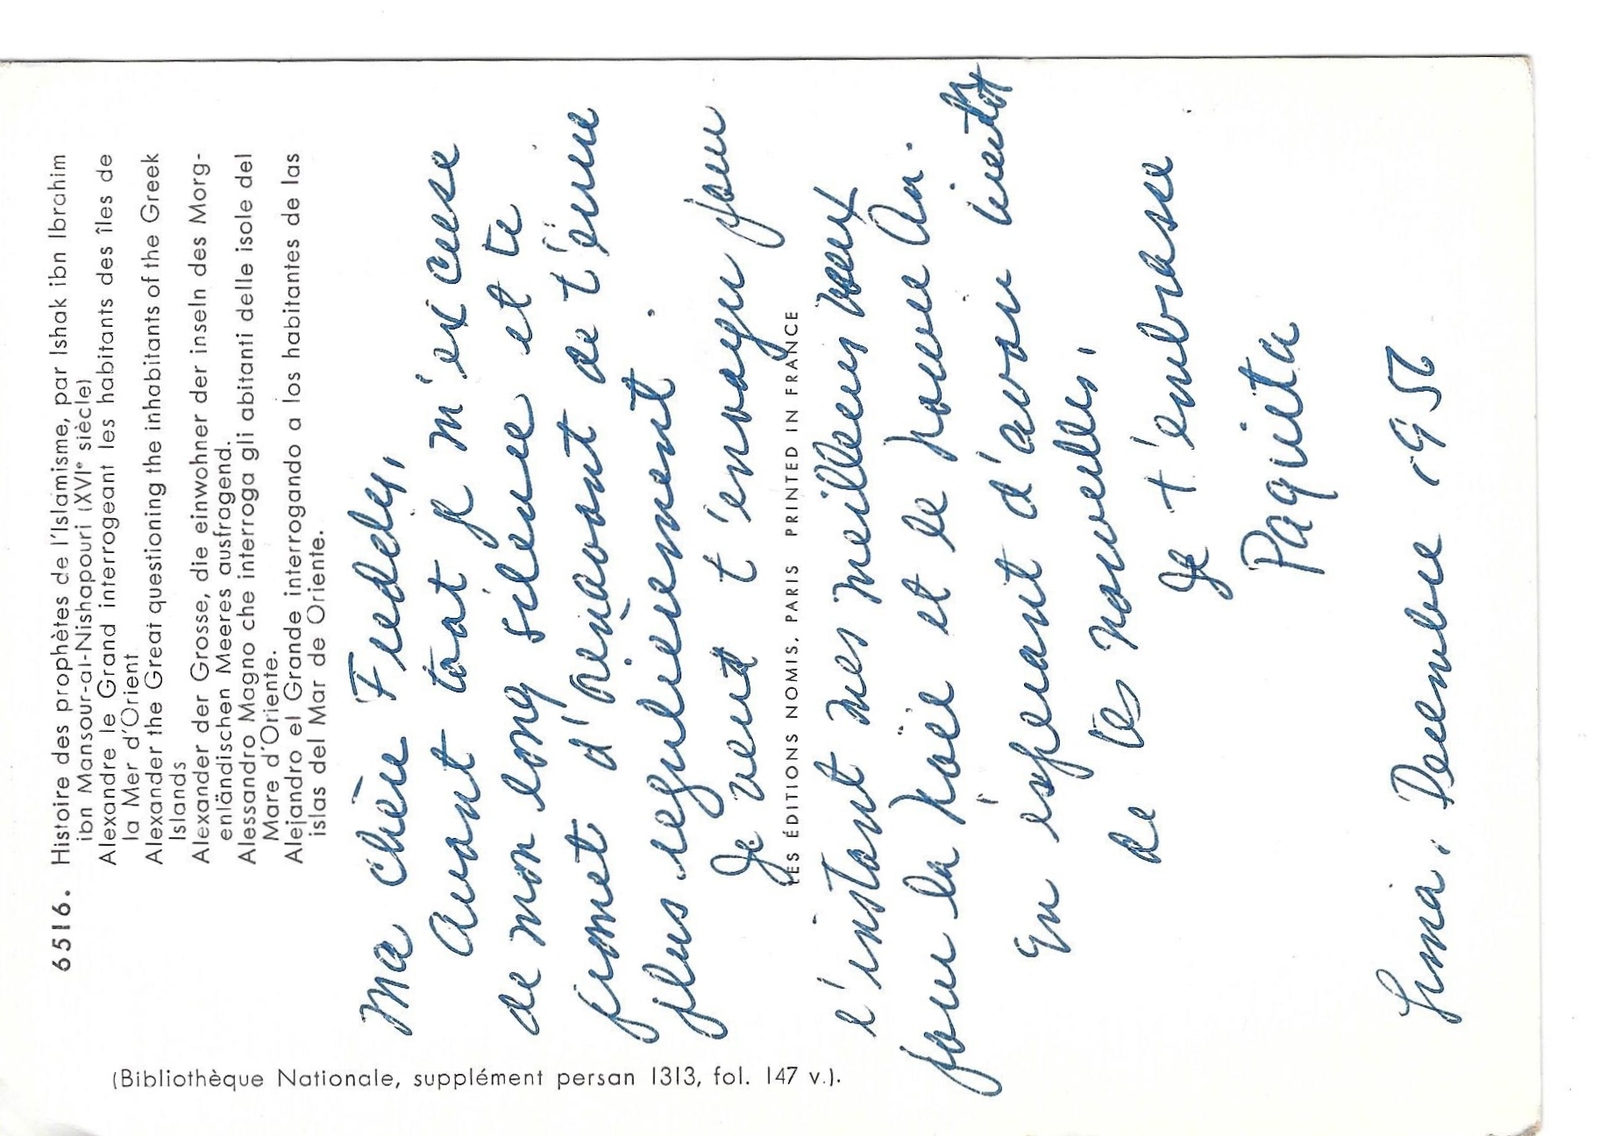 6516. Histoire des prophètes de l'Islamisme, par Ishak ibn Ibrahim
ibn Mansour-al-Nishapouri (XVIe siècle)
Alexandre le Grand interrogeant les habitants des îles de
la Mer d'Orient
Alexander the Great questioning the inhabitants of the Greek
Islands
Alexander der Grosse, die einwohner der inseln des Morg-
enländischen Meeres ausfragend.
Alessandro Magno che interroga gli abitanti delle isole del
Mare d'Oriente.
Alejandro el Grande interrogando a los habitantes de las
islas del Mar de Oriente.
Ma chère Fredely,
Avant tout je m'excuse
de mon long silence et te
promet d'orénavant de t'écrire
plus regulièrement.
Je veut t'envoyer pour
LES ÉDITIONS NOMIS, PARIS PRINTED IN FRANCE
l'instant mes meilleurs vœux
pour la Noël et le Nouvel An.
En esperant d'avoir bientôt
de tes nouvelles,
Je t'embrasse
Paquita
Lima, Decembre 1956
(Bibliothèque Nationale, supplément persan 1313, fol. 147 v.).